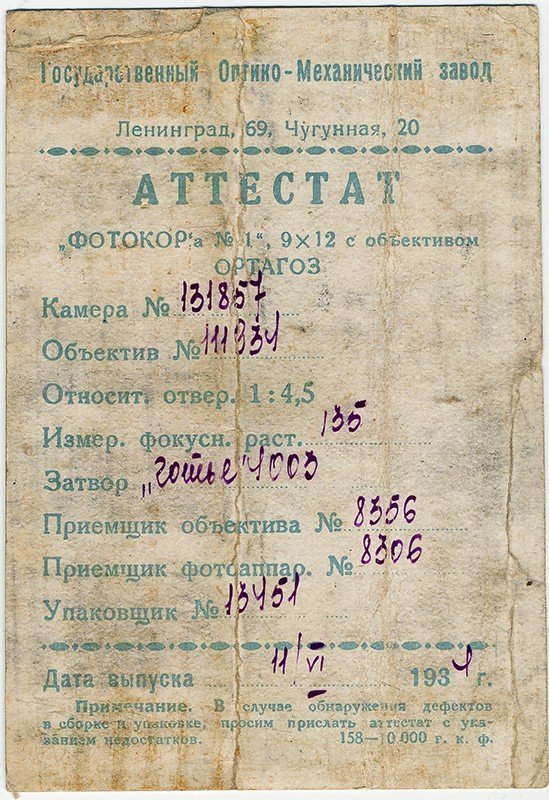 Государственный Оптико-Механический завод
Ленинград, 69, Чугунная, 20
АТТЕСТАТ
„ФОТОКОР'а № 1“, 9×12 с объективом
ОРТАГОЗ
Камера № 131857
Объектив № 111934
Относит. отвер. 1:4,5
Измер. фокусн. раст. 135
Затвор „Готье" 4003
Приемщик объектива № 8356
Приемщик фотоаппар. № 8306
Упаковщик № 13451
Дата выпуска 11/VI 1934 г.
Примечание. В случае обнаружения дефектов
в сборке и упаковке, просим прислать аттестат с ука-
занием недостатков. 158—10 000 г. к. ф.